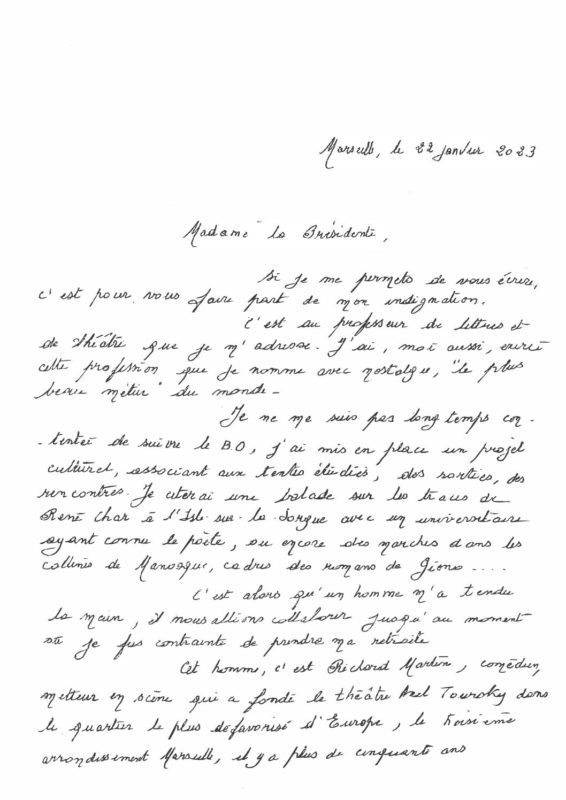 Marseille, le 22 janvier 2023
Madame la Présidente,
Si je me permets de vous écrire,
c'est pour vous faire part de mon indignation.
C'est au professeur de lettres et
de théâtre que je m'adresse. J'ai, moi aussi, exercé
cette profession que je nomme avec nostalgie, "le plus
beau métier" du monde -
Je ne me suis pas longtemps con-
-tentée de suivre le B.O, j'ai mis en place un projet
culturel, associant aux textes étudiés, des sorties, des
rencontres. Je citerai une balade sur les traces de
René Char à l'Isle sur la Sorgue avec un universitaire
ayant connu le poète, ou encore des marches dans les
collines de Manosque, cadres des romans de Giono ....
C'est alors qu'un homme m'a tendu
la main, il nous allions collaborer jusqu'au moment
où je fus contrainte de prendre ma retraite
Cet homme, c'est Richard Martin, comédien,
metteur en scène qui a fondé le théâtre Axel Toursky dans
le quartier le plus défavorisé d'Europe, le troisième
arrondissement Marseille, il y a plus de cinquante ans